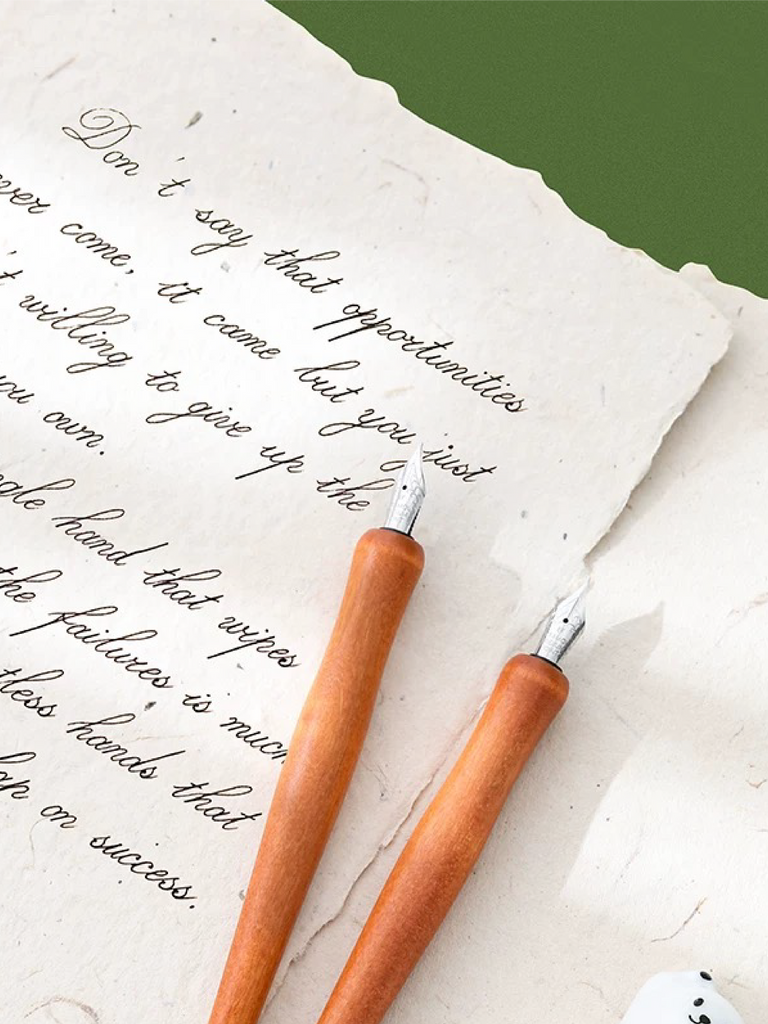 Don't say that opportunities
ver come, it came but you just
't willing to give up the
you own.
gle hand that wipes
the failures is much
tless hands that
lap on success.